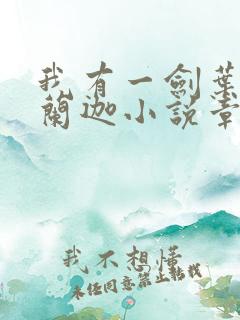 我有一劍葉
蘭迦小說章
我不想懂
未經同意禁止轉載